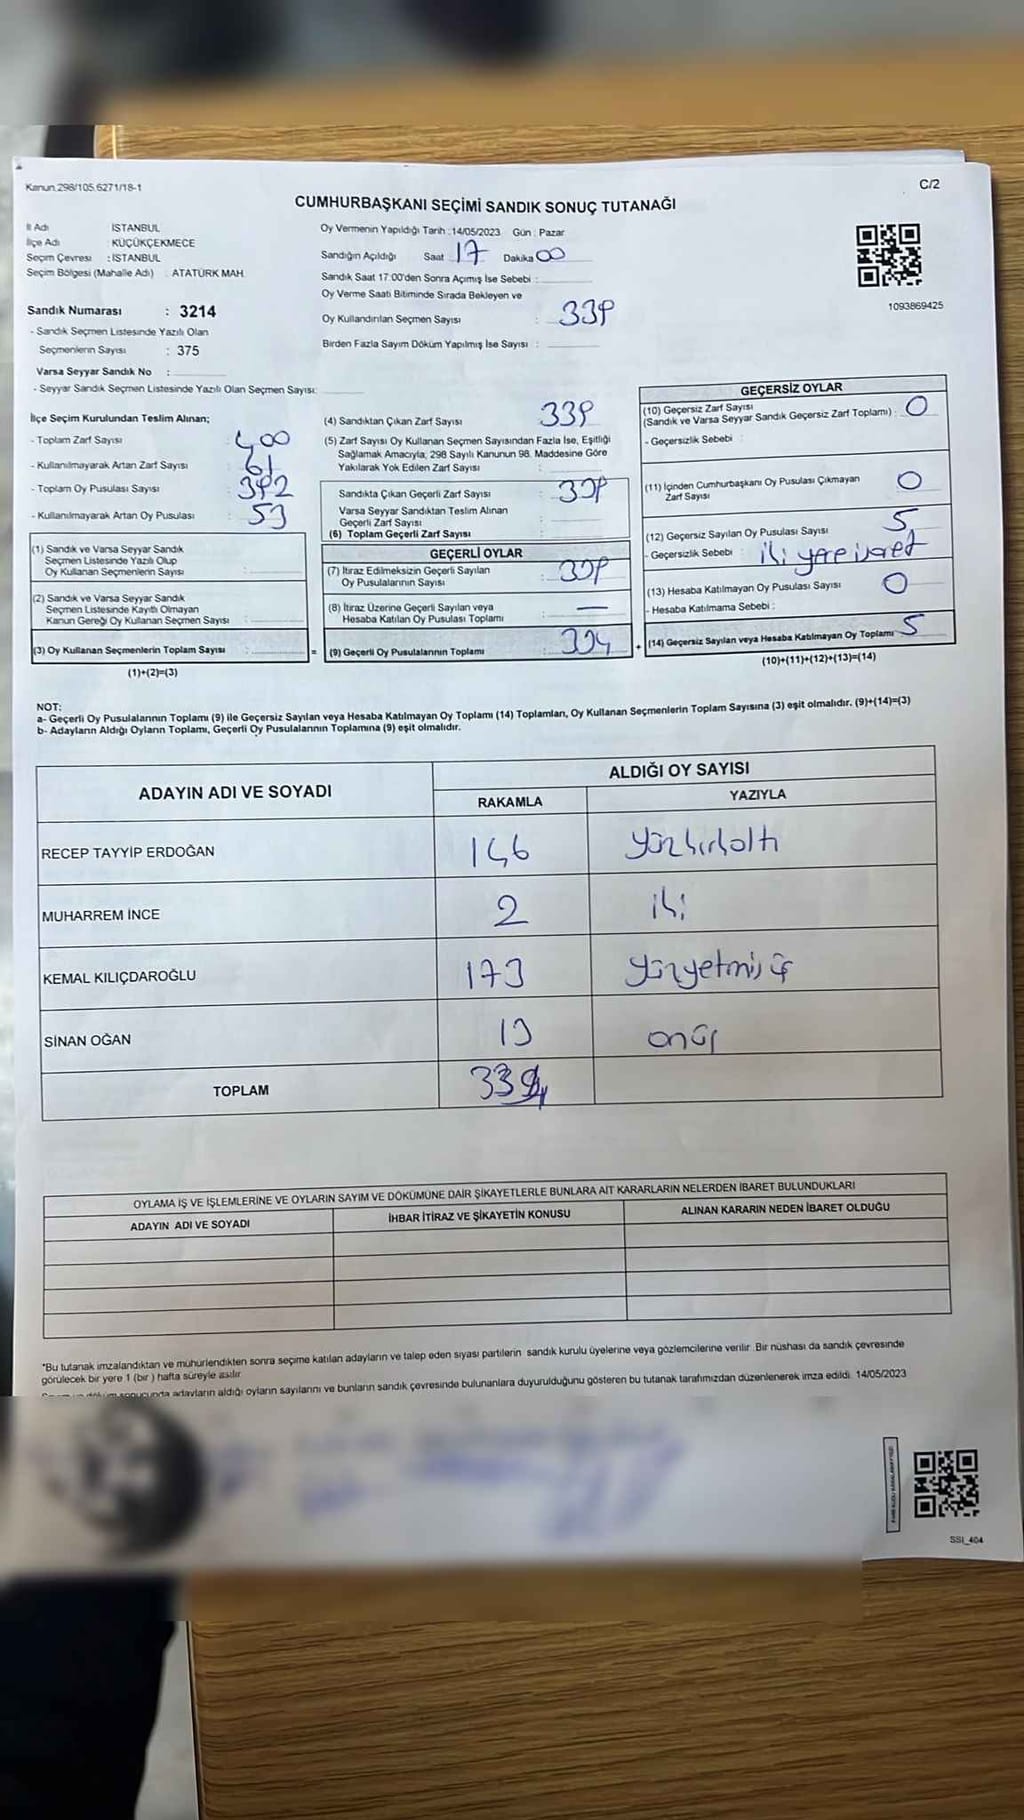 Kanun.298/105.6271/18-1
C/2
CUMHURBAŞKANI SEÇİMİ SANDIK SONUÇ TUTANAĞI
İl Adı İSTANBUL
İlçe Adı : KÜÇÜKÇEKMECE
Seçim Çevresi : İSTANBUL
Seçim Bölgesi (Mahalle Adı) : ATATÜRK MAH.
Sandık Numarası : 3214
- Sandık Seçmen Listesinde Yazılı Olan
Seçmenlerin Sayısı : 375
Varsa Seyyar Sandık No :
- Seyyar Sandık Seçmen Listesinde Yazılı Olan Seçmen Sayısı:
Oy Vermenin Yapıldığı Tarih : 14/05/2023 Gün : Pazar
Sandığın Açıldığı Saat 17 Dakika 00
Sandık Saat 17:00'den Sonra Açımış İse Sebebi :
Oy Verme Saati Bitiminde Sırada Bekleyen ve
Oy Kullandırılan Seçmen Sayısı : 339
Birden Fazla Sayım Döküm Yapılmış İse Sayısı :
1093869425
İlçe Seçim Kurulundan Teslim Alınan;
- Toplam Zarf Sayısı : 400
- Kullanılmayarak Artan Zarf Sayısı : 61
- Toplam Oy Pusulası Sayısı : 392
- Kullanılmayarak Artan Oy Pusulası : 53
(1) Sandık ve Varsa Seyyar Sandık
Seçmen Listesinde Yazılı Olup
Oy Kullanan Seçmenlerin Sayısı :
(2) Sandık ve Varsa Seyyar Sandık
Seçmen Listesinde Kayıtlı Olmayan
Kanun Gereği Oy Kullanan Seçmen Sayısı :
(3) Oy Kullanan Seçmenlerin Toplam Sayısı :
(1)+(2)=(3)
(4) Sandıktan Çıkan Zarf Sayısı : 339
(5) Zarf Sayısı Oy Kullanan Seçmen Sayısından Fazla İse, Eşitliği
Sağlamak Amacıyla, 298 Sayılı Kanunun 98. Maddesine Göre
Yakılarak Yok Edilen Zarf Sayısı :
Sandıkta Çıkan Geçerli Zarf Sayısı : 339
Varsa Seyyar Sandıktan Teslim Alınan
Geçerli Zarf Sayısı :
(6) Toplam Geçerli Zarf Sayısı :
GEÇERLİ OYLAR
(7) İtiraz Edilmeksizin Geçerli Sayılan
Oy Pusulalarının Sayısı : 339
(8) İtiraz Üzerine Geçerli Sayılan veya
Hesaba Katılan Oy Pusulası Toplamı : —
= (9) Geçerli Oy Pusulalarının Toplamı : 334
GEÇERSİZ OYLAR
(10) Geçersiz Zarf Sayısı
(Sandık ve Varsa Seyyar Sandık Geçersiz Zarf Toplamı) : 0
- Geçersizlik Sebebi :
(11) İçinden Cumhurbaşkanı Oy Pusulası Çıkmayan
Zarf Sayısı : 0
(12) Geçersiz Sayılan Oy Pusulası Sayısı : 5
- Geçersizlik Sebebi : iki yere işaret
(13) Hesaba Katılmayan Oy Pusulası Sayısı : 0
- Hesaba Katılmama Sebebi :
+ (14) Geçersiz Sayılan veya Hesaba Katılmayan Oy Toplamı : 5
(10)+(11)+(12)+(13)=(14)
NOT:
a- Geçerli Oy Pusulalarının Toplamı (9) ile Geçersiz Sayılan veya Hesaba Katılmayan Oy Toplamı (14) Toplamları, Oy Kullanan Seçmenlerin Toplam Sayısına (3) eşit olmalıdır. (9)+(14)=(3)
b- Adayların Aldığı Oyların Toplamı, Geçerli Oy Pusulalarının Toplamına (9) eşit olmalıdır.
ADAYIN ADI VE SOYADI
ALDIĞI OY SAYISI
RAKAMLA YAZIYLA
RECEP TAYYİP ERDOĞAN 146 yüzkırkaltı
MUHARREM İNCE 2 iki
KEMAL KILIÇDAROĞLU 173 yüzyetmiş üç
SİNAN OĞAN 13 onüç
TOPLAM 334
OYLAMA İŞ VE İŞLEMLERİNE VE OYLARIN SAYIM VE DÖKÜMÜNE DAİR ŞİKAYETLERLE BUNLARA AİT KARARLARIN NELERDEN İBARET BULUNDUKLARI
ADAYIN ADI VE SOYADI İHBAR İTİRAZ VE ŞİKAYETİN KONUSU ALINAN KARARIN NEDEN İBARET OLDUĞU
*Bu tutanak imzalandıktan ve mühürlendikten sonra seçime katılan adayların ve talep eden siyasi partilerin sandık kurulu üyelerine veya gözlemcilerine verilir. Bir nüshası da sandık çevresinde
görülecek bir yere 1 (bir) hafta süreyle asılır.
sonucunda adayların aldığı oyların sayılarını ve bunların sandık çevresinde bulunanlara duyurulduğunu gösteren bu tutanak tarafımızdan düzenlenerek imza edildi. 14/05/2023
SSI_404